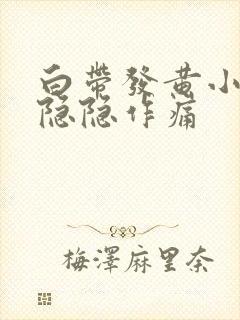 白帶發黄小
隐隐作痛
梅澤麻里奈